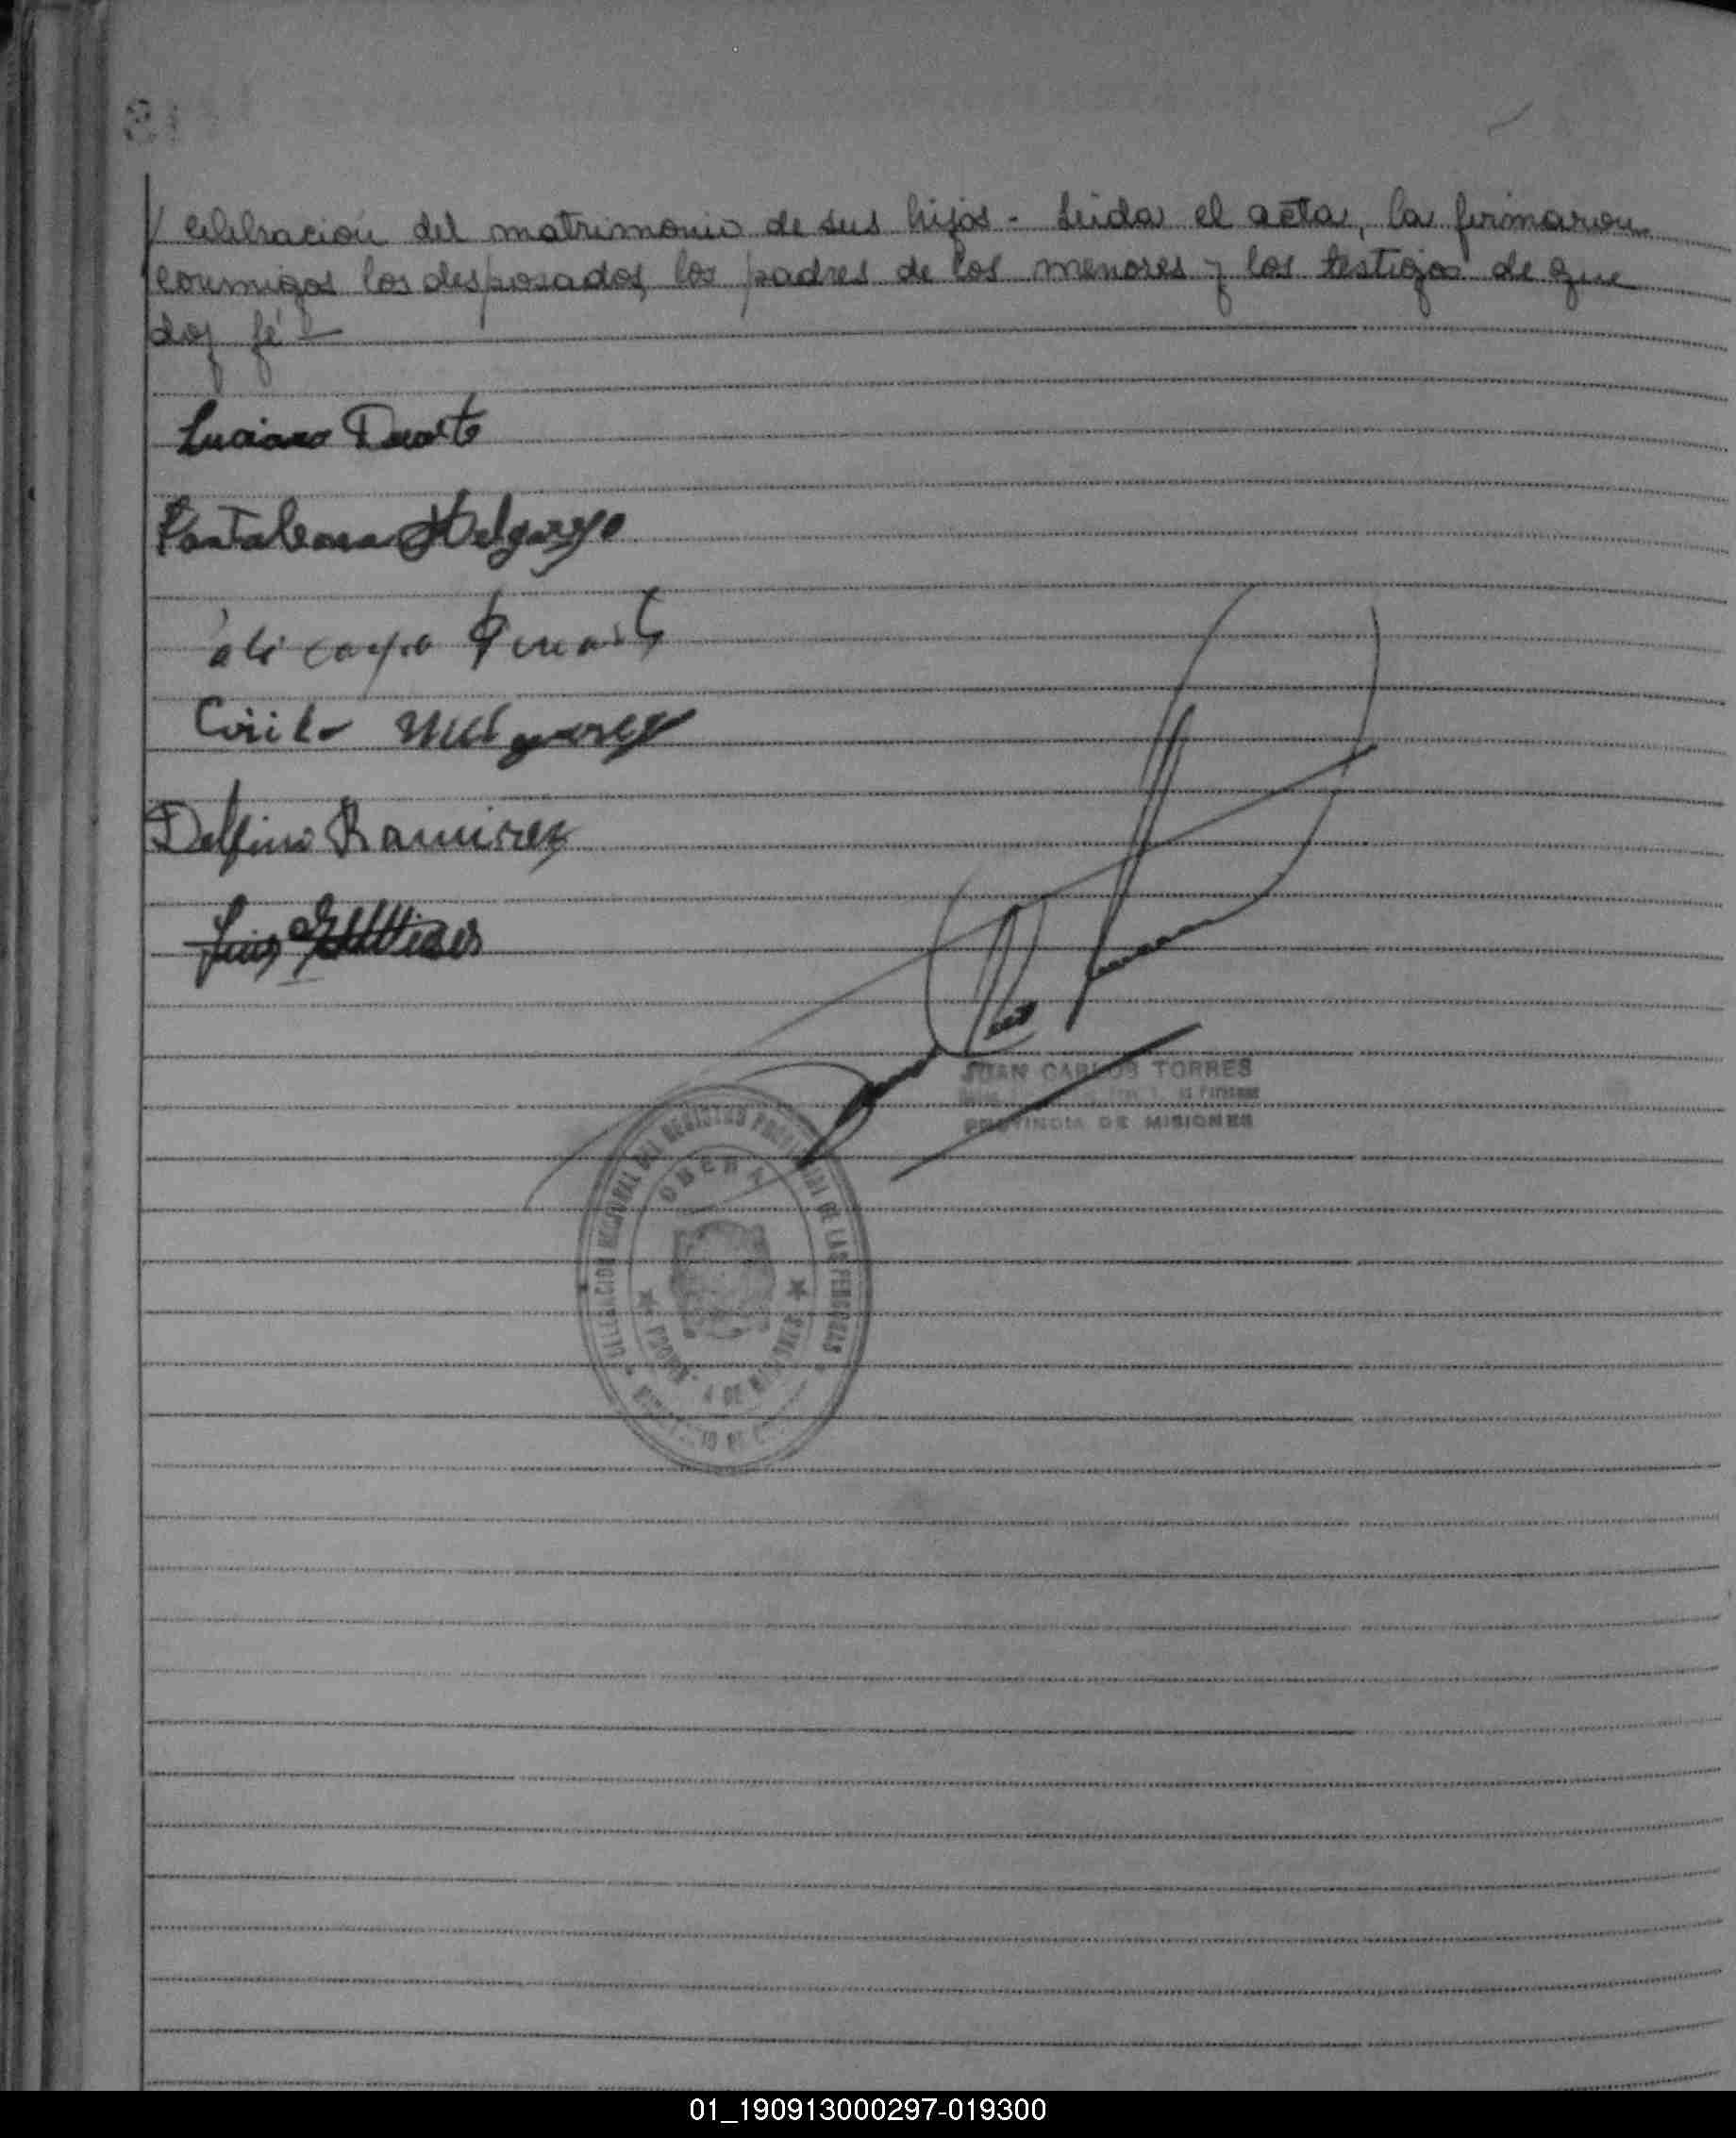 / celebración del matrimonio de sus hijos - Leida el acta, la firmaron
conmigos los desposados, los padres de los menores y los testigos de que
doy fé
Luciano Duarte
Pantaleona Melgarejo
Cirilo Melgarejo
Delfino Ramirez
JUAN CARLOS TORRES
PROVINCIA DE MISIONES
DELEGACION REGIONAL DEL REGISTRO PROVINCIAL DE LAS PERSONAS
OBERA
01_190913000297-019300